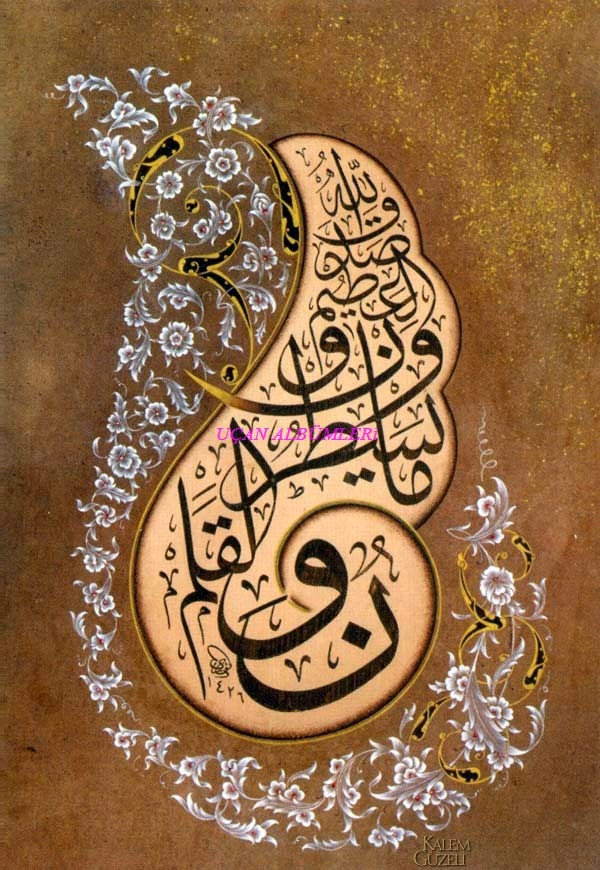 ن والقلم
وما يسطرون
صدق الله العظيم
UÇAN ALBÜMLERi
١٤٢٦
KALEM
GÜZELİ